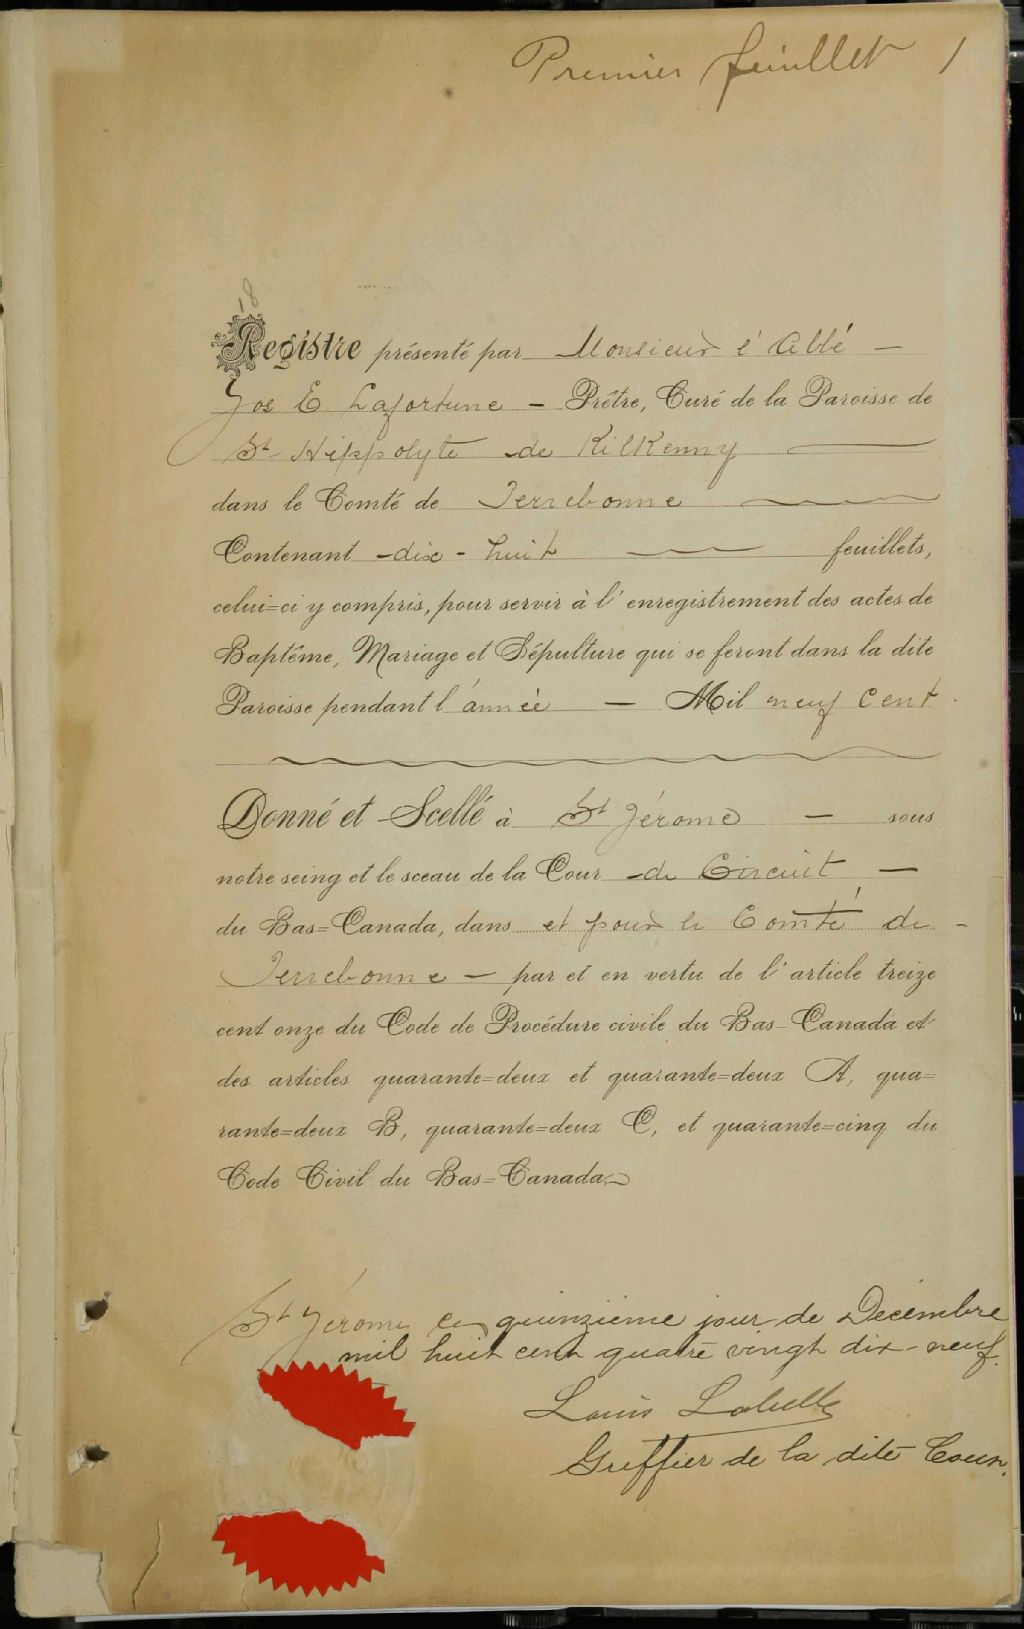 Premier feuillet 1
18
Registre présenté par Monsieur l'Abbé —
Jos E. Lafortune — Prêtre, Curé de la Paroisse de
St Hippolyte de Kilkenny
dans le Comté de Terrebonne
Contenant - dix - huit feuillets,
celui=ci y compris, pour servir à l'enregistrement des actes de
Baptême, Mariage et Sépulture qui se feront dans la dite
Paroisse pendant l'année — Mil neuf cent.
Donné et Scellé à St Jérome — sous
notre seing et le sceau de la Cour de Circuit —
du Bas=Canada, dans et pour le Comté de -
Terrebonne — par et en vertu de l'article treize
cent onze du Code de Procédure civile du Bas-Canada et
des articles quarante=deux et quarante=deux A, qua=
rante=deux B, quarante=deux C, et quarante=cinq du
Code Civil du Bas=Canada.
St Jérome ce quinzième jour de Décembre
mil huit cent quatre vingt dix-neuf.
Louis Labelle
Greffier de la dite Cour.